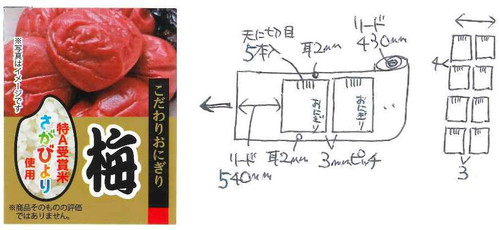 ※写真はイメージです
こだわりおにぎり
梅
特A受賞米
さがびより
使用
※商品そのものの評価
ではありません。
天に切り目
5本入
耳2mm
リード
430mm
おにぎり
おにぎり
リード
540mm
耳2mm
3mmピッチ
4
3